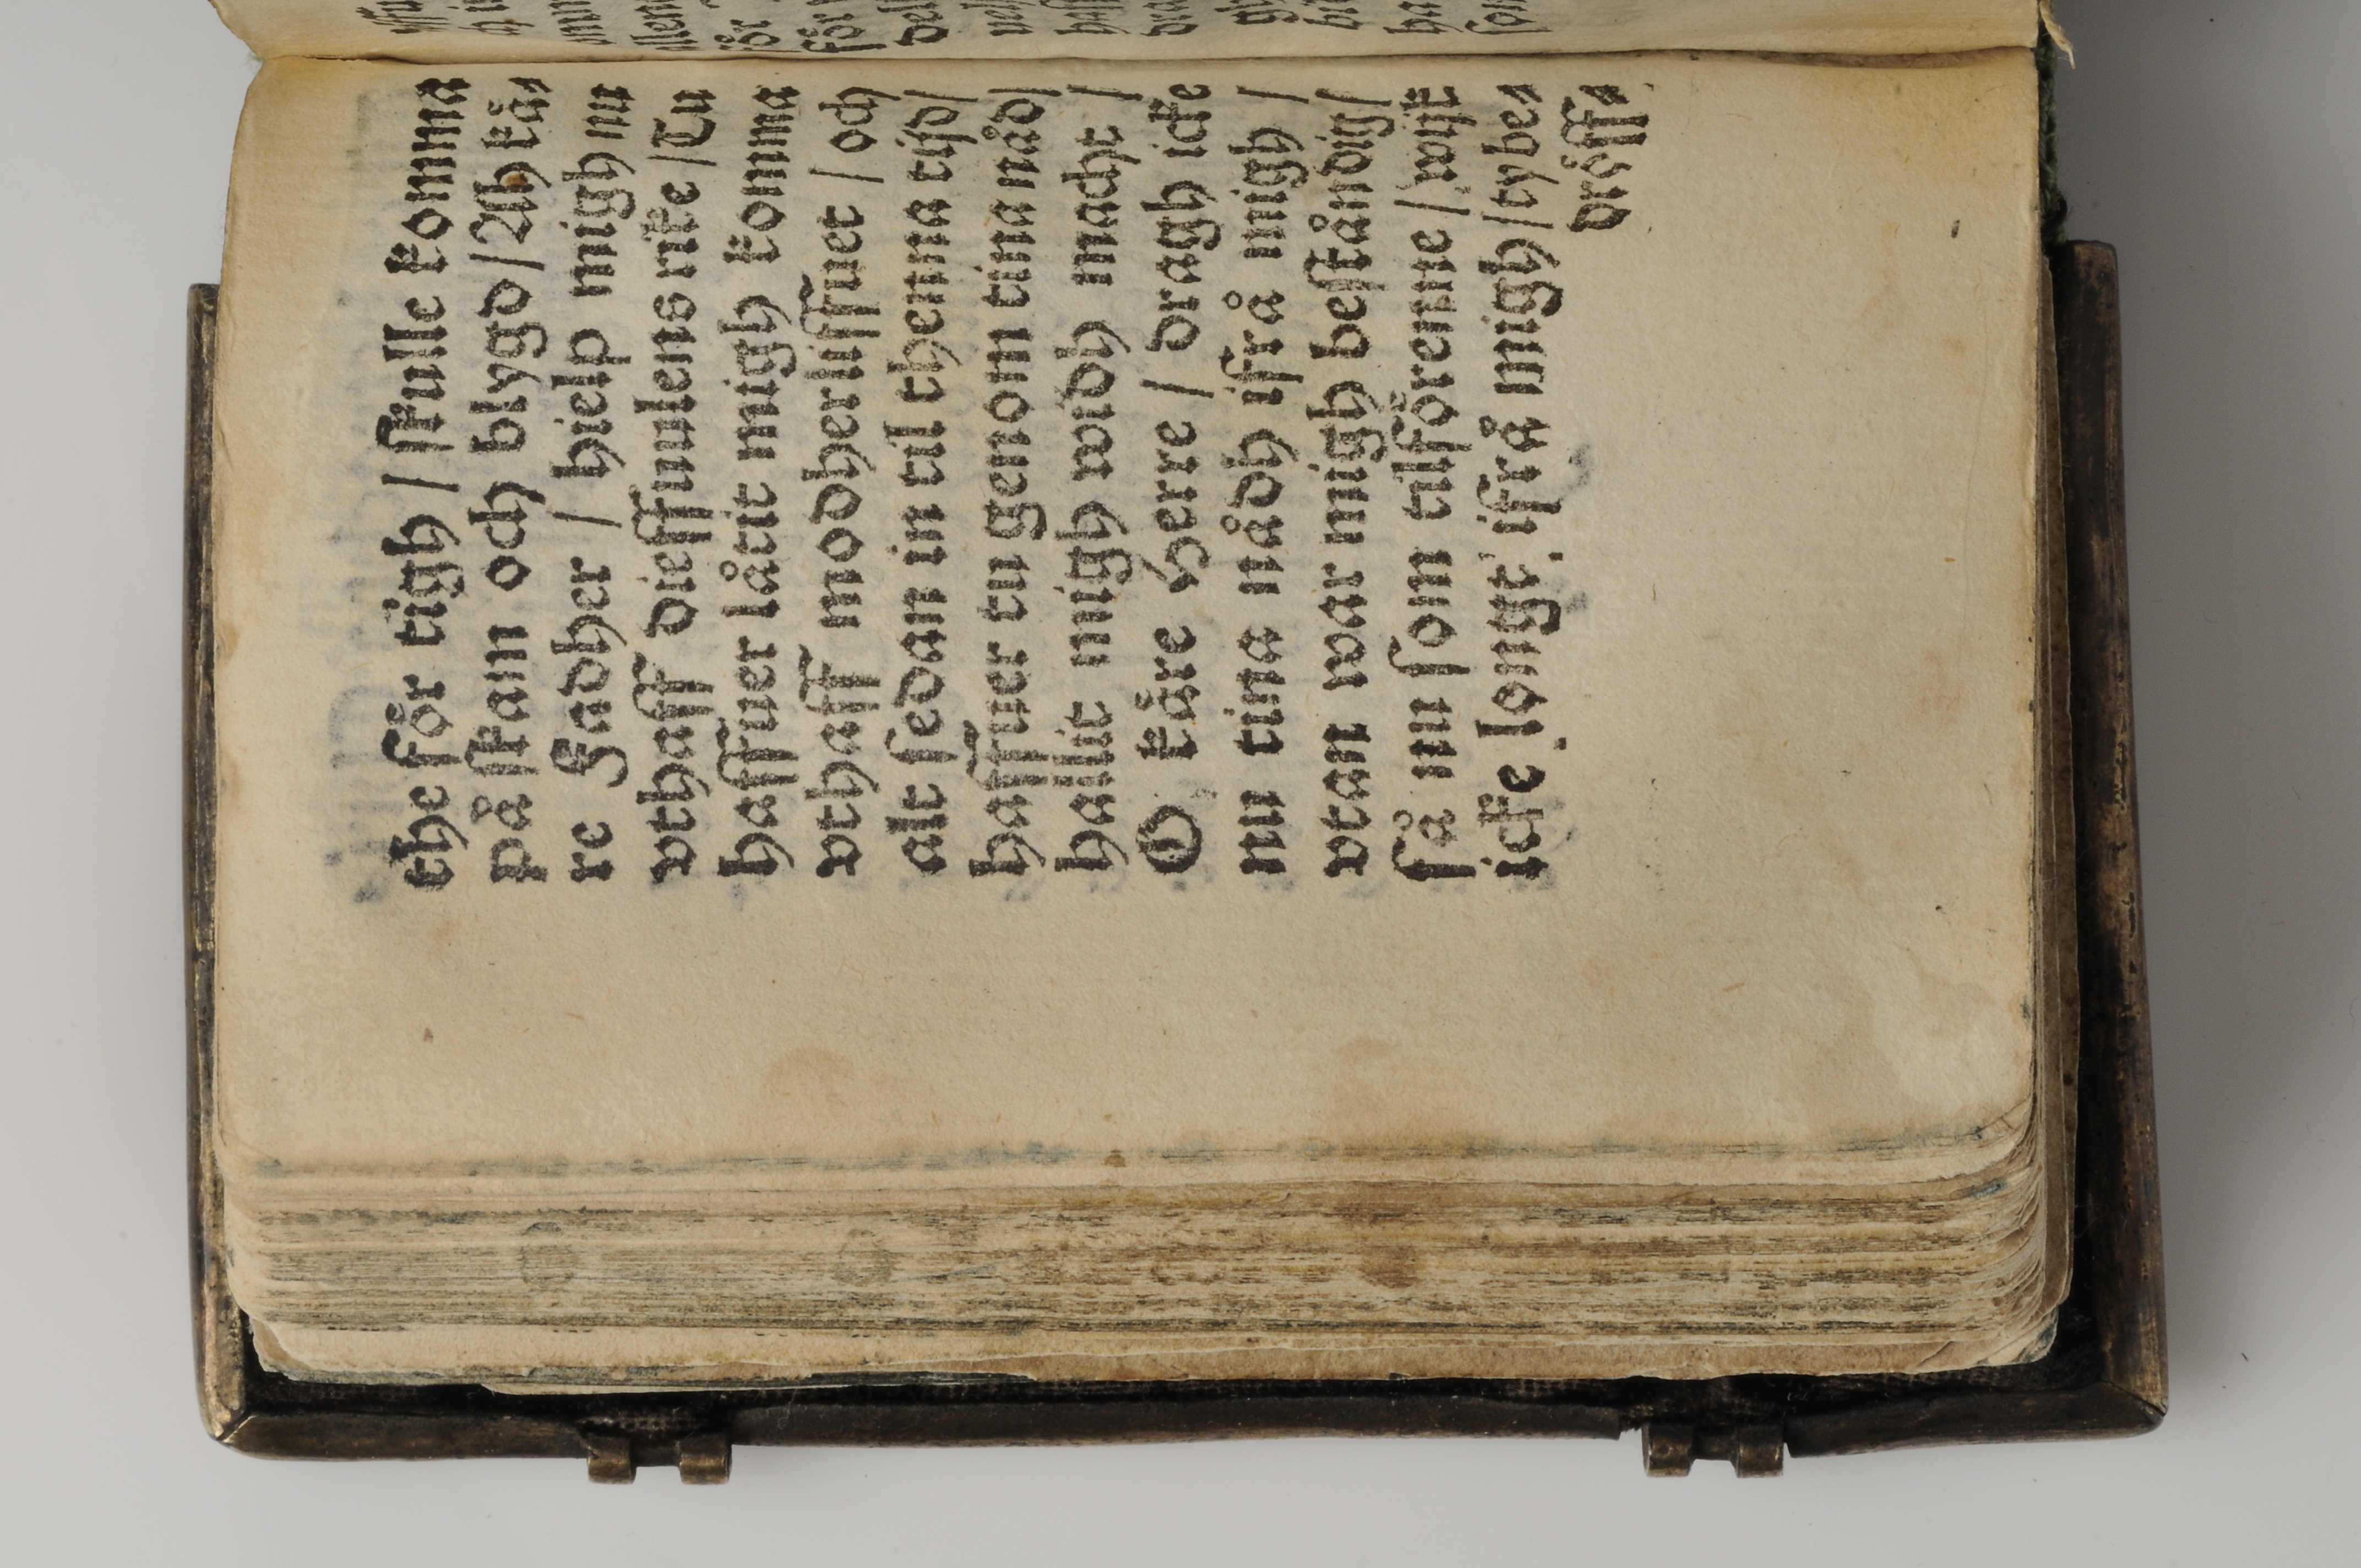 the för tigh / skulle komma
på skam och blygd / Ah kå⸗
re Fadher / hielp migh nu
vthaff dieffuulens rike / Tu
haffuer låtit migh komma
vthaff modherliffuet / och
alt sedan in til thenna tijd /
haffuer tu genom tina nåd /
hallit migh widh macht /
O käre Herre / dragh icke
nu tina nådh ifrå migh /
vtan war migh beståndig /
så nu som tilförenne / wijk
icke longt ifrå migh / ty be⸗
dröff⸗